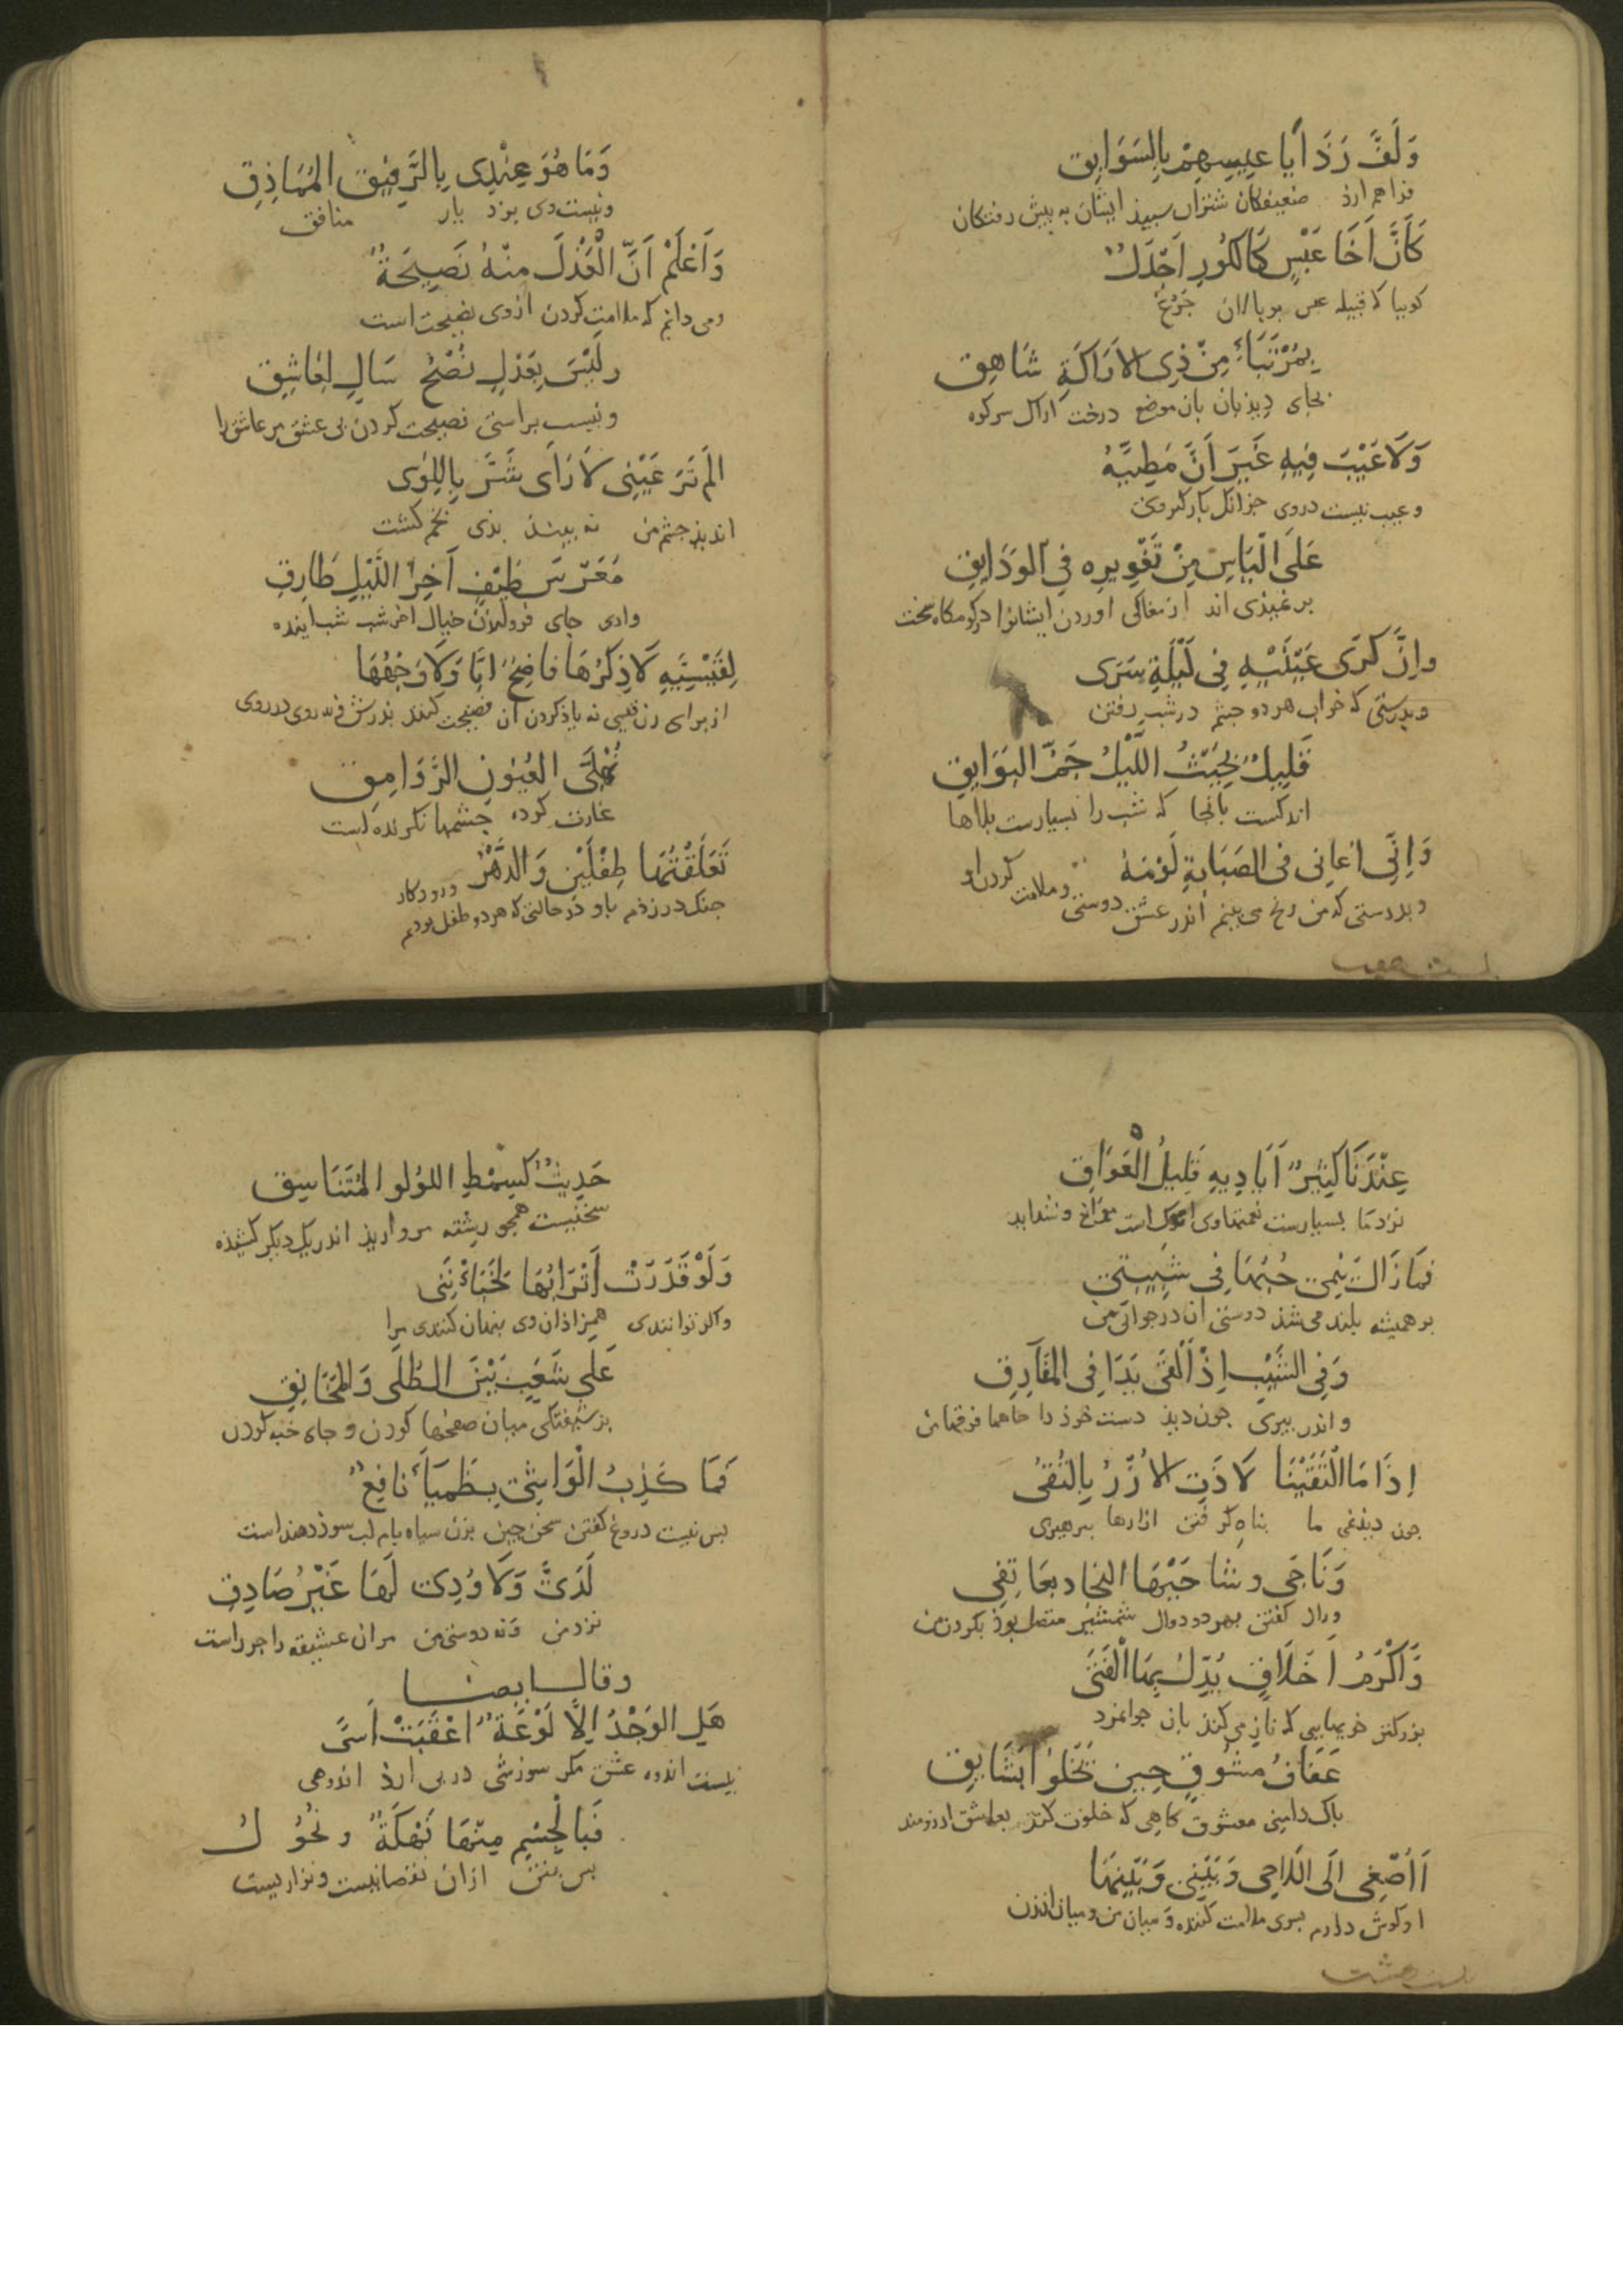 وَلَفَّ رَذَايَا عِيسِهِمْ بِالسَوَابِقِ
فراهم ارذ ضعیفکان شتران سپیذ ایشان به پیش رفتکان
كَاَنَّ اَخَا عَبْسٍ كَالكُورِ اَجْدَلٌ
کوییا که قبیله عبس بر پالان چرغ
بِمُرْتَبَاءٍ مِنْ ذِى الاَرَاكَةِ شَاهِقِ
بجای دیذبان بان موضع درخت اراک سر کوه
وَلَا عَيْبَ فِيهِ غَيْرَ اَنَّ مَطِيَّهُ
و عیب نیست دروی جز انک بارکیر وی
عَلَى الْيَاسِ مِنْ تَغْوِيرِه فِى الوَدَايِقِ
بر نمیذی اند از مغاکی اوردن ایشانرا در کرمکاه سخت
واِنَّ كَرَى عَيْنَيْهِ فِى لَيْلَةِ سَرَى
وبدرستی که خواب هر دو جشم در شب رفتن
قَلِيلٌ بِحَيْثُ اللَّيْلُ جَمُّ البَوَايِقِ
اندکست بانجا که شب را بسیارست بلاها
وَاِنِّى اعَانِى فى الصَبَابةِ لَوْمَهُ
وبدرستی که من رنج می بینم اندر عشق دوستی و ملامت کردن او
بیست هفت
وَمَا هُوَ عِنْدِى بِالرَّفِيْقِ المُمَاذِقِ
و نیست وی بنزد یار منافق
وَاَعْلَمُ اَنَّ الْعَذْلَ مِنْهُ نَصِيحَةٌ
و می دانم که ملامت کردن ازوی نصیحت است
وليْسَ بِعَدْلٍ نُصْحُ سَالٍ لِعَاشِقِ
و نیست براستی نصیحت کردن بی عشق مر عاشق را
اَلَمْ تَرَ عَيْنِى لَا رَاَى شَتَرٌ بِاللِوَى
اند بذ جشم من نه بیند بذی بخم کشت
مُعَرَّسَ طَيْفٍ آخِرَ اللَّيْلِ طَارِقِ
وادی جای فرو امذن خیال اخر شب شب اینده
لِقَيْسِيَّةٍ لَا ذِكْرُهَا فاضِحٌ ابًا وَلَا وَجْهُهَا
از برای زن قیسی نه یاذ کردن ان فضیحت کننده بذرش و نه روی در روی
نُهْبَى العُيُونِ الرَّوَامِقِ
غارت کرده جشمها نکرنده است
تَعَلَقْتُهَا طِفْلَيْنِ وَالدَّهْرُ
جنک در زذم باو در حالتی که هر دو طفل بودیم و روزکار
عِنْدَنَا كَثِيرٌ اَيَادِيهِ قَلِيلُ الْعَوَايِقِ
نزد ما بسیارست نعمتهاوی اندک است موانع و شداید
فمَا زَالَ يَنْمِى حُبُّهَا فِى شَبِيبَتِى
بر همیشه بلند می شذ دوستی ان در جوانی من
وَفِى الشَّيْبِ اِذْ اَلْقَى يَدًا فِى المَفَارِقِ
و اندر پیری جون دیذ دست خوذ را جاهها فرقها من
اِذَا مَا الْتَقَيْنَا لَاذَتِ الاُزْرُ بِالتُّقَى
جون دیذمی ما پناه کرفتن ازارها بپرهیزی
وَنَاجَى وِشَاحَيْهَا النجاد بعَاتِقِى
و راز کفتن بهر دو دوال شمشیر متصل بوذ بکردن من
وَاَكْرَمُ اَخْلَاقٍ يُدِلُّ بِهَا الْفَتَى
بزرکتر خویهایی که ناز می کند بان جوانمرد
عَفَافُ مشُوقٍ حِينَ تَخْلُوا بِشَايِقِ
پاک دامنی معشوق کاهی که خلوت کند بعاشق ارزومند
اَاُصْغِى اِلَى اللَاحِى وَبَيْنِى وَبَيْنِهَا
او کوش دارم بسوی ملامت کننده و میان من و میان ان زن
بیست هشت
حَدِيثٌ كَسِمْطِ اللؤلو المُتَنَاسِقِ
سخنیست همچو رشته مروارید اندر یک دیکر کشیذه
وَلَوْ قَدَرَتْ اَتْرَابُهَا لَخَبَاْنَنِى
واکر توانندی همزاذان وی پنهان کنندی مرا
عَلَى شَغَفٍ بَيْنَ الطُلَى وَالمَخَانِقِ
بر شیفتکی میان صفحها کردن و جای خبه کردن
فَمَا كَذِبُ الْوَاشِى بِظَمْيَاءَ نافِعٌ
بس نیست دروغ کفتن سخن چین بزن سیاه بام لب سوذ دهنده است
لَدَىَّ وَلَا وُدِى لَهَا غَيْرُ صَادِقِ
نزد من و نه دوستی من مر ان عشیقه را جز راست
وقال ايضا
هَلِ الوَجْدُ اِلَّا لَوْعَةٌ اَعْقَبَتْ اَسًى
نیست اندوه عشق مکر سوزشی در پی ارذ اندوهی
فَبِالْجِسْمِ مِنْهَا نَهْكَةٌ ونُحُولُ
بس بتن ازان نقصانیست و نزاریست